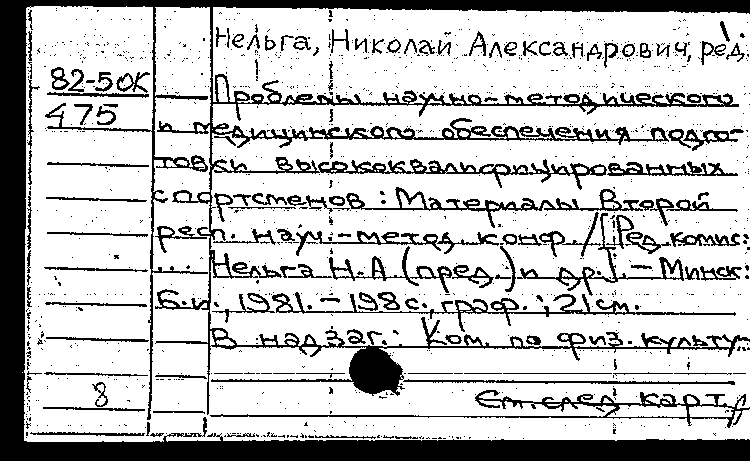 Нельга, Николай Александрович, ред.
82-50К
475
Проблемы научно-методического
и медицинского обеспечения подго-
товки высококвалифицированных
спортсменов : Материалы Второй
респ. науч.-метод. конф. / [Ред. комис.:
... Нельга Н.А. (пред.) и др.]. - Минск:
Б.и., 1981. - 198 с., граф. ; 21 см.
В надзаг.: Ком. по физ. культу-
8
См. след. карт.